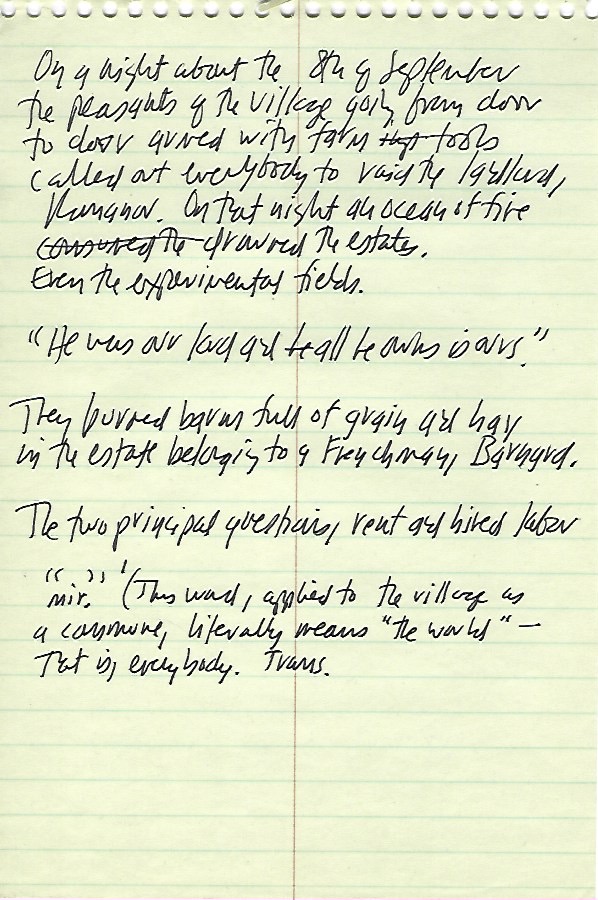 On a night about the 8th of September
the peasants of the village going from door
to door armed with farm tools
called out everybody to raid the landlord,
Romanov. On that night an ocean of fire
consumed the drowned the estates.
Even the experimental fields.
"He was our lord and all he owns is ours."
They burned barns full of grain and hay
in the estate belonging to a Frenchman, Barnard.
The two principal questions, rent and hired labor
"mir." (This word, applied to the village as
a commune, literally means "the world" —
That is, everybody. Trans.